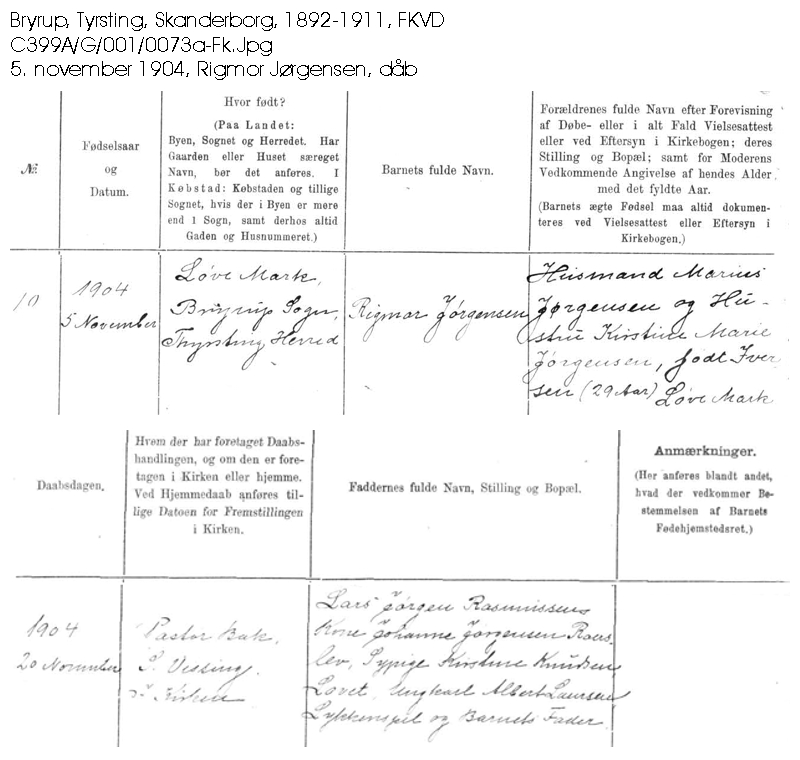 Bryrup, Tyrsting, Skanderborg, 1892-1911, FKVD
C399A/G/001/0073a-Fk.Jpg
5. november 1904, Rigmor Jørgensen, dåb
№
Fødselsaar
og
Datum.
Hvor født?
(Paa Landet:
Byen, Sognet og Herredet. Har
Gaarden eller Huset særeget
Navn, bør det anføres. I
Købstad: Købstaden og tillige
Sognet, hvis der i Byen er mere
end 1 Sogn, samt derhos altid
Gaden og Husnummeret.)
Barnets fulde Navn.
Forældrenes fulde Navn efter Forevisning
af Døbe- eller i alt Fald Vielsesattest
eller ved Eftersyn i Kirkebogen; deres
Stilling og Bopæl; samt for Moderens
Vedkommende Angivelse af hendes Alder
med det fyldte Aar.
(Barnets ægte Fødsel maa altid dokumen-
teres ved Vielsesattest eller Eftersyn i
Kirkebogen.)
10
1904
5 November
Løve Mark,
Bryrup Sogn,
Thyrsting Herred
Rigmor Jørgensen
Husmand Marius
Jørgensen og Hu-
stru Kirstine Marie
Jørgensen, født Iver
sen (29 Aar) Løve Mark
Daabsdagen.
Hvem der har foretaget Daabs-
handlingen, og om den er fore-
tagen i Kirken eller hjemme.
Ved Hjemmedaab anføres til-
lige Datoen for Fremstillingen
i Kirken.
Faddernes fulde Navn, Stilling og Bopæl.
Anmærkninger.
(Her anføres blandt andet,
hvad der vedkommer Be-
stemmelsen af Barnets
Fødehjemstedsret.)
1904
20 November
Pastor Bak,
S. Vissing.
Kirken
Lars Jørgen Rasmussens
Kone Johanne Jørgensen Roers
lev, Sypige Kirstine Knudsen
Løvet, Ungkarl Albert Laursen
Lykkenspil og Barnets Fader.